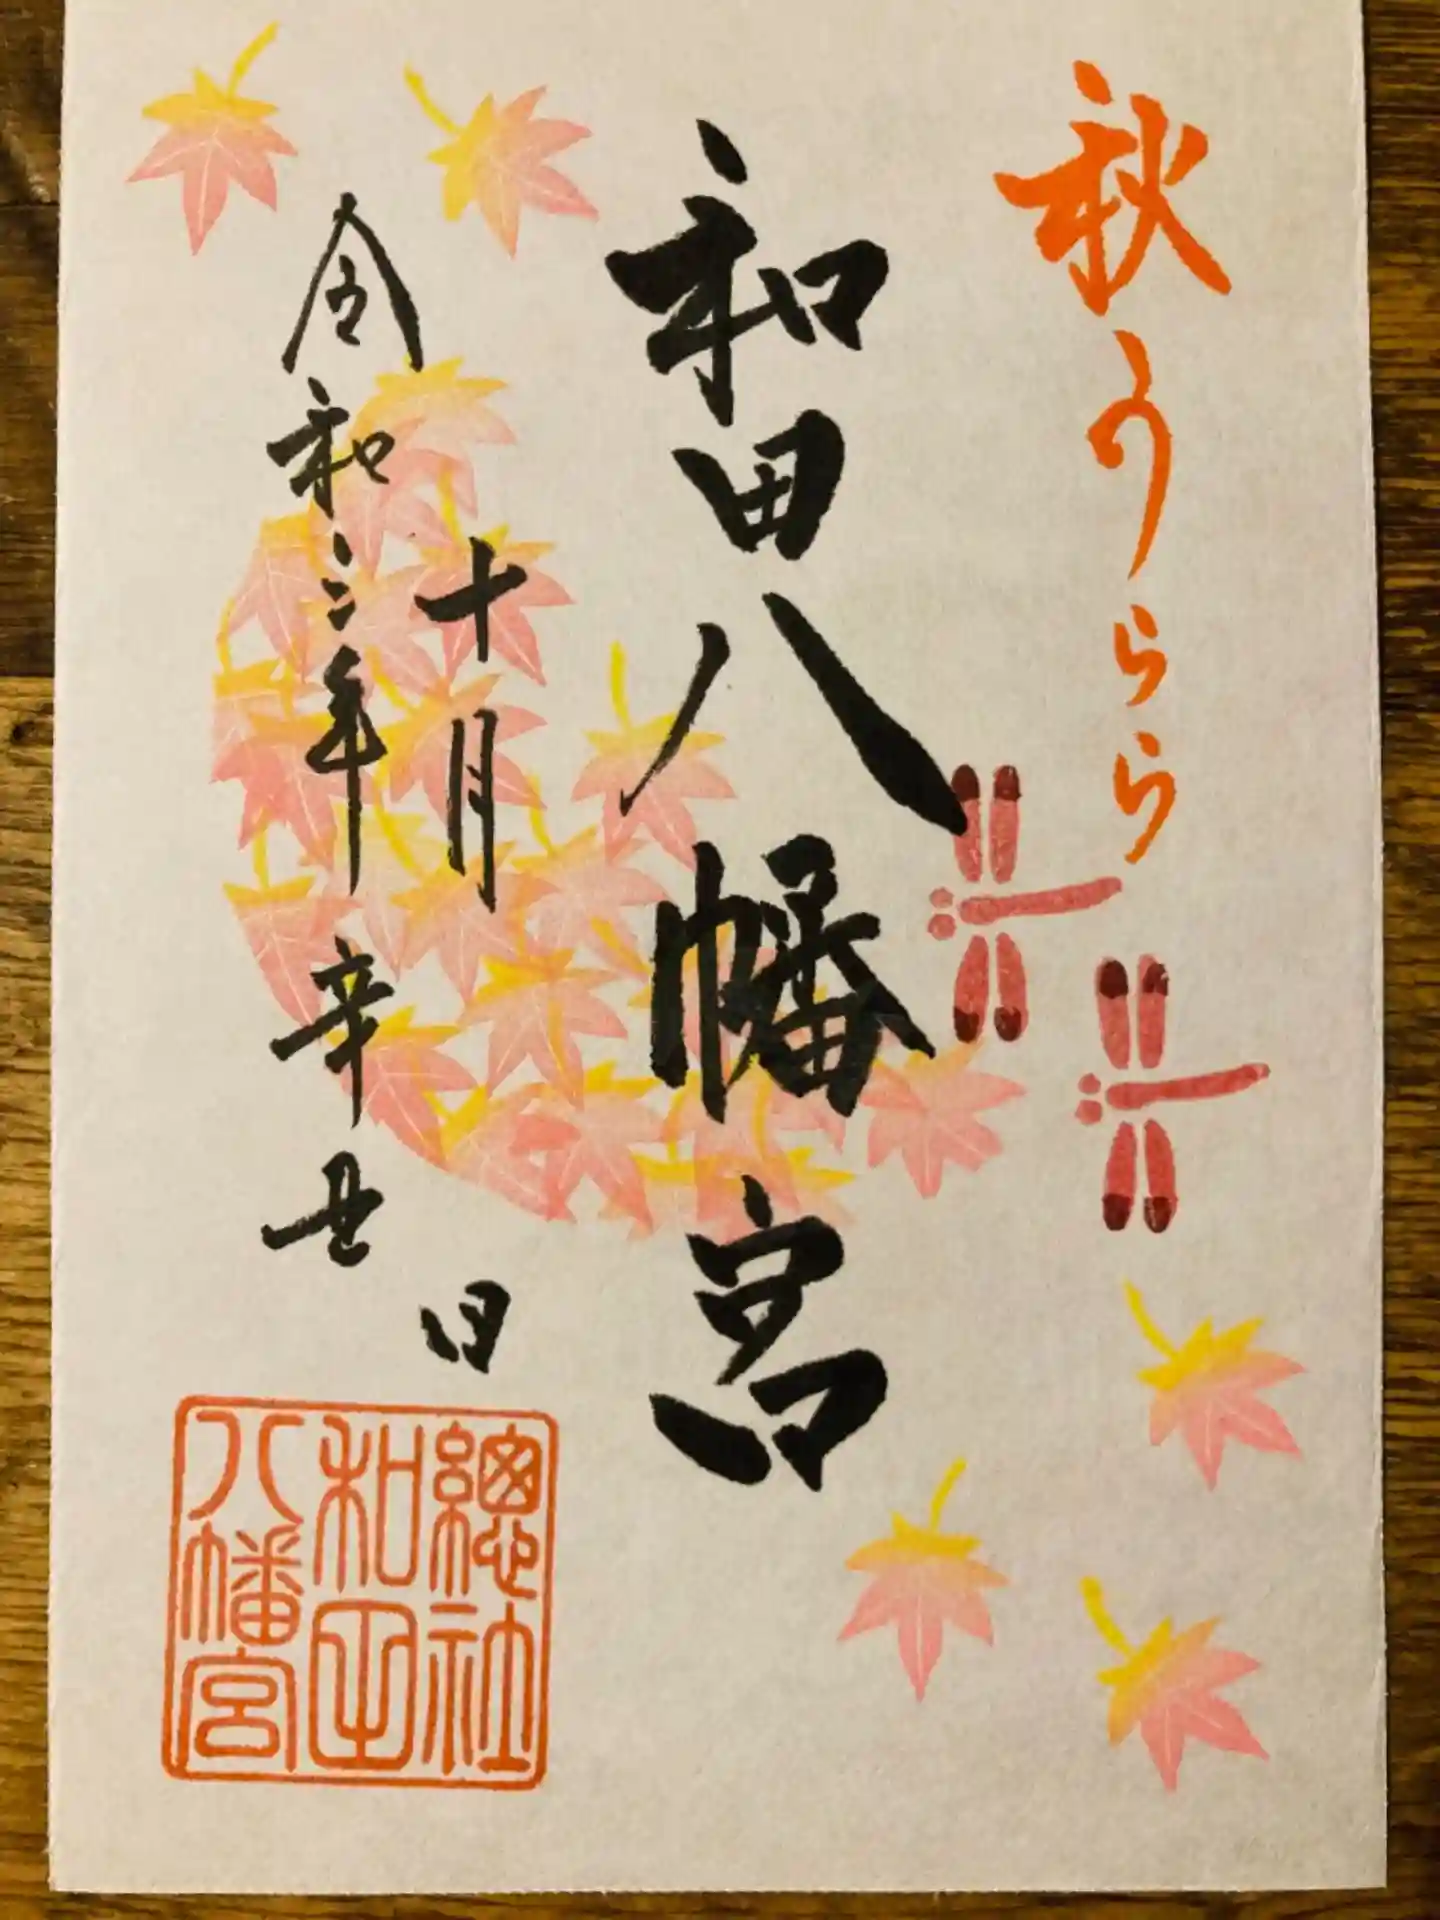 秋うらら
和田八幡宮
十月 日
令和三年 辛丑
總社
和田
八幡宮